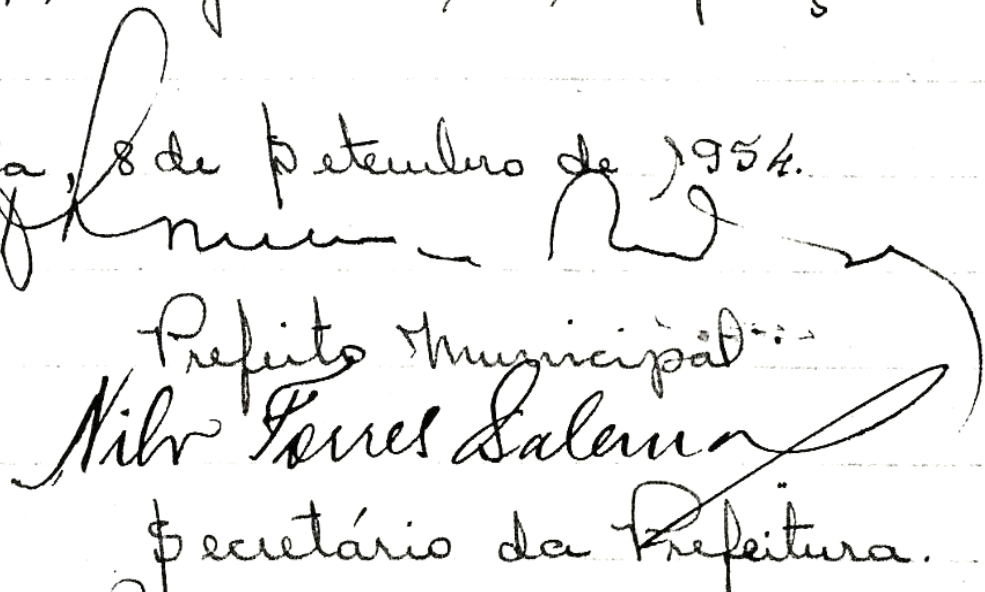 a, 8 de Setembro de 1954.
Prefeito Municipal
Nilo Torres Salema
Secretário da Prefeitura.